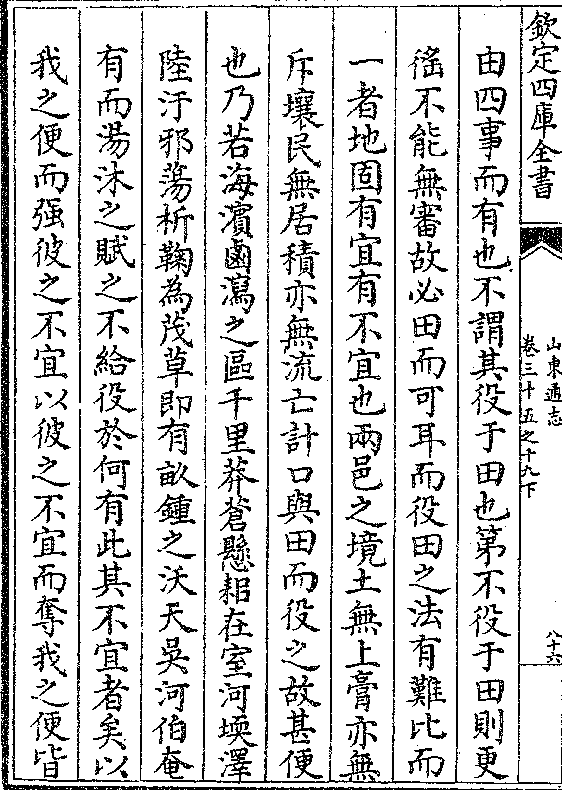 欽定四庫全書
山東通志
卷三十五之十九下
八十六
由四事而有也不謂其役于田也第不役于田則更
徭不能無審故必田而可耳而役田之法有難比而
一者地固有宜有不宜也兩邑之境土無上膏亦無
斥壤民無居積亦無流亡計口與田而役之故甚便
也乃若海濵鹵瀉之區千里莽蒼懸耜在室河堧澤
陸汙邪蕩析鞠為茂草即有畝鍾之沃天吳河伯奄
有而湯沐之賦之不給役於何有此其不宜者矣以
我之便而强彼之不宜以彼之不宜而奪我之便皆